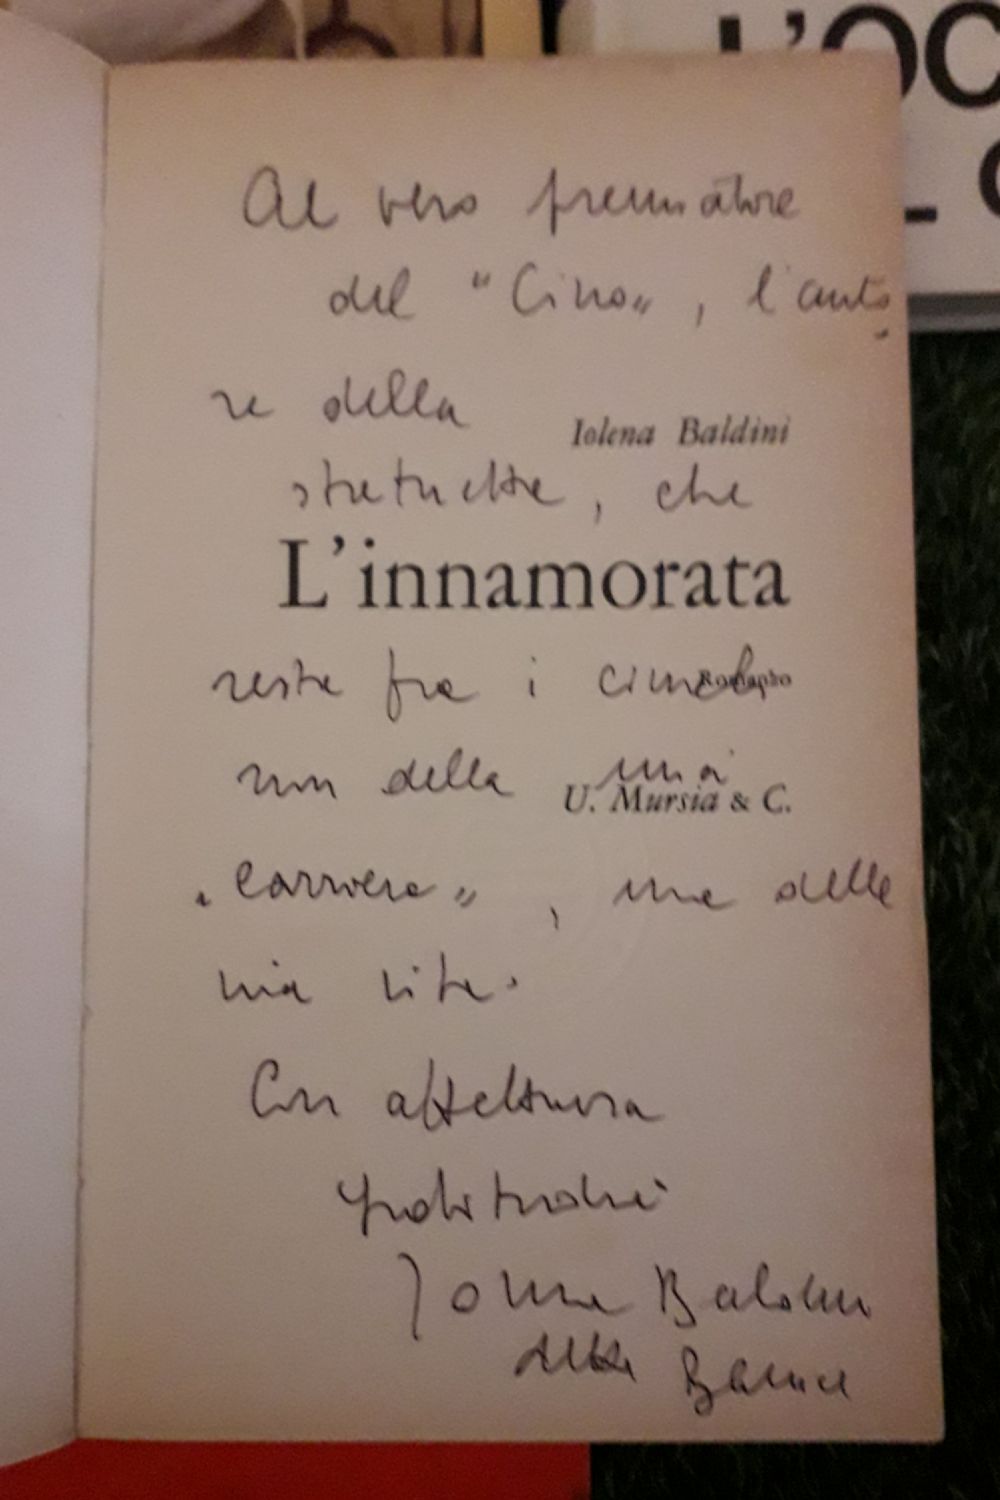 L'OC
L C
Al vero premiatore
del "Cino", l'auto
re della
Iolena Baldini
, che
L'innamorata
resta fra i
Romanzo
non della mia
U. Mursia & C.
"carriera", ma della
mia vita.
Con affettuosa
gratitudine
Iolena Baldini
detta Berenice